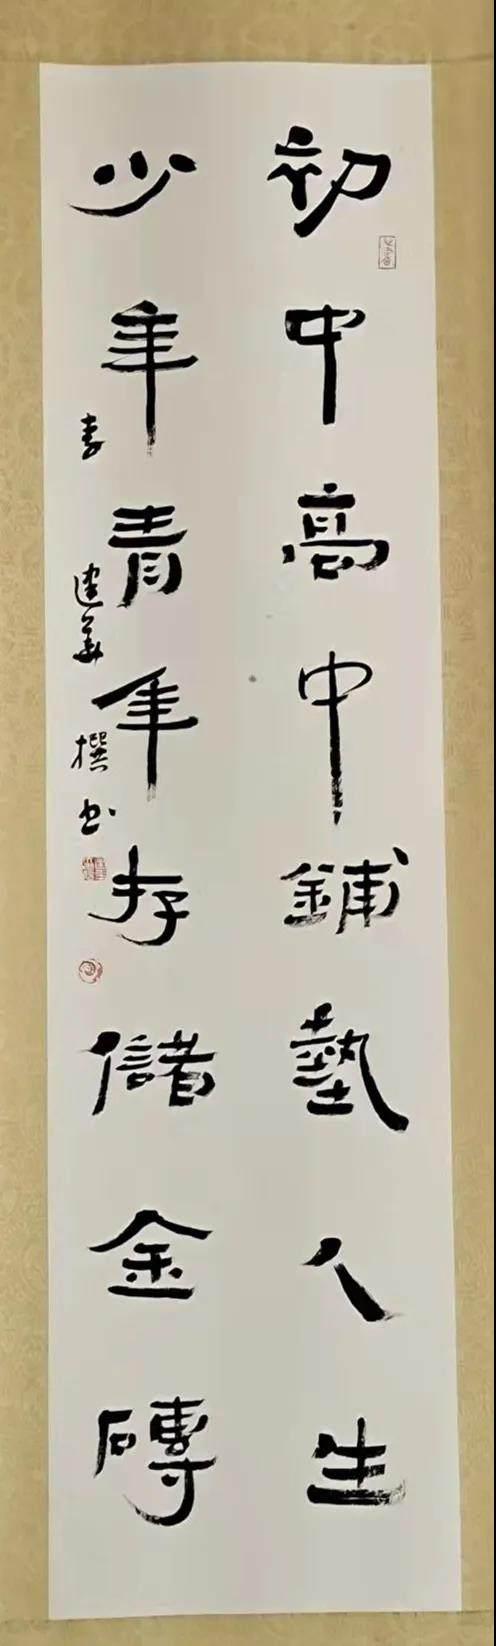 初中高中鋪藝人生
少年青年存儲金磚
李建華撰书